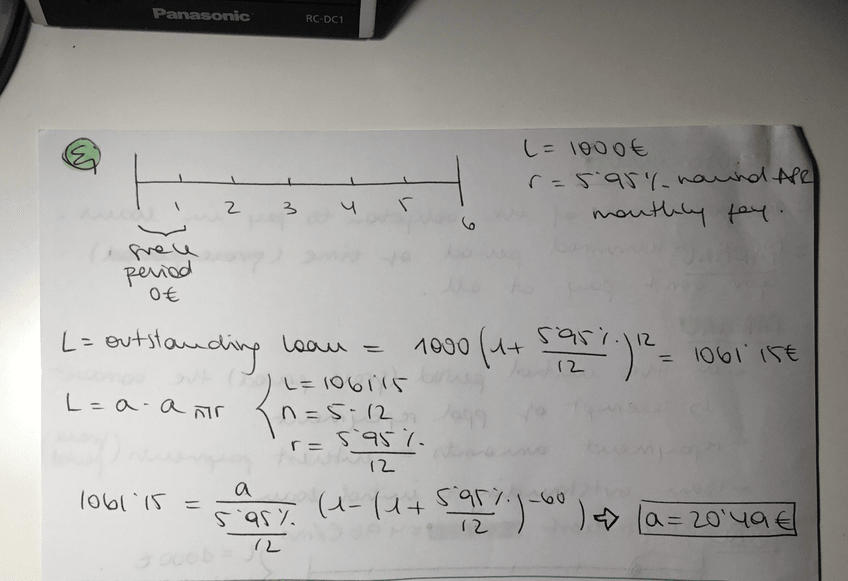 Panasonic RC-DC1
L = 1000€
r = 5'95% nominal APR
monthly pay.
1 2 3 4 5 6
grace
period
0€
L = outstanding loan = 1000 (1 + 5'95% / 12)^12 = 1061'15€
L = a · a n⌉r { L = 1061'15
n = 5 · 12
r = 5'95% / 12
1061'15 = a / (5'95% / 12) (1 - (1 + 5'95% / 12)^-60) ⇒ a = 20'49€